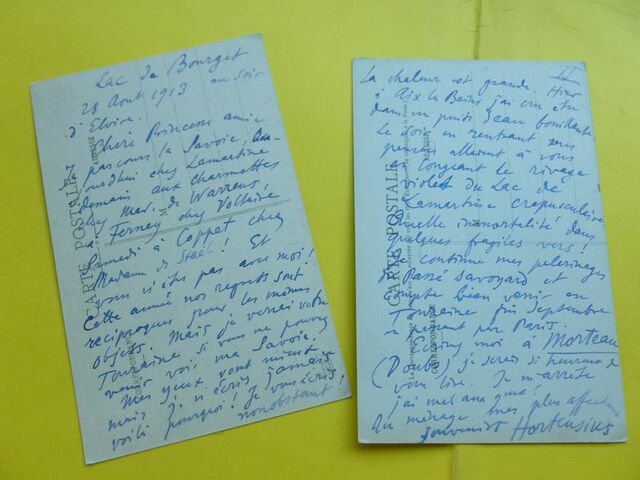 Lac du Bourget
28 Aout 1913 au soir
d'Elvire.
Chère Princesse amie
Je parcours la Savoie, Au-
jourdhui chez Lamartine,
demain aux Charmettes
chez Mad. de Warrens,
à Ferney chez Voltaire,
Samedi à Coppet chez
Madame de Stael! Et
vous n'êtes pas avec moi!
Cette année nos regrets sont
réciproques pour les mêmes
objets. Mais je verrai votre
Touraine si vous ne pouvez
venir voir ma Savoie.
Mes yeux vont mieux
mais je n'écris jamais
voilà pourquoi! Je vous écris
nonobstant!
CARTE POSTALE
ADRESSE
CORRESPONDANCE
II
La chaleur est grande. Hier
à Aix les Bains j'ai cru être
dans un puits d'eau bouillante.
Le soir en rentrant mes
pensées allaient à vous
en longeant le rivage
violet du Lac de
Lamartine crepusculaire
Quelle immortalité dans
quelques fragiles vers!
Je continue mes pelerinages
de Passé savoyard et
compte bien venir en
Touraine fin Septembre
en passant par Paris.
Ecrivez moi à Morteau
(Doubs) je serai si heureux de
vous lire. Je m'arrête
j'ai mal aux yeux!
Au ménage mes plus affectueux
souvenirs Hortensius
CARTE POSTALE
ADRESSE
CORRESPONDANCE